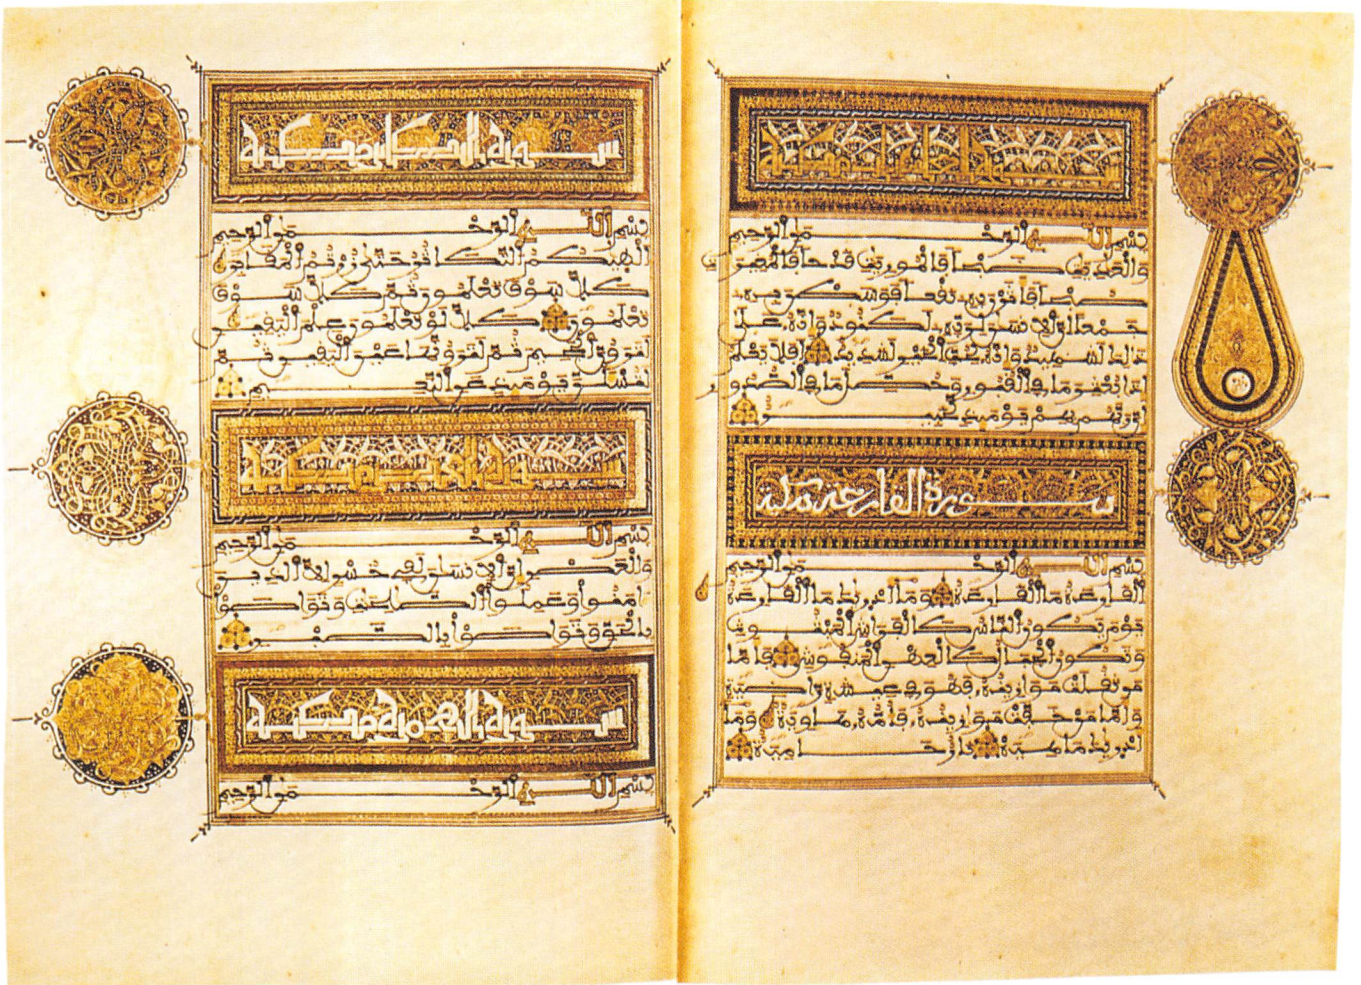 بسم الله الرحمن الرحيم
والعديت ضبحا فالموريت قدحا فالمغيرت
صبحا فأثرن به نقعا فوسطن به
جمعا إن الإنسن لربه لكنود وإنه على
ذلك لشهيد وإنه لحب الخير لشديد أفلا يعلم
إذا بعثر ما في القبور وحصل ما في الصدور
إن ربهم بهم يومئذ لخبير
سورة القارعة مكية
بسم الله الرحمن الرحيم
القارعة ما القارعة وما أدريك ما القارعة
يوم يكون الناس كالفراش المبثوث
وتكون الجبال كالعهن المنفوش فأما
من ثقلت موازينه فهو في عيشة راضية
وأما من خفت موازينه فأمه هاوية وما
أدريك ما هيه نار حامية
سورة التكاثر مكية
بسم الله الرحمن الرحيم
ألهيكم التكاثر حتى زرتم المقابر
كلا سوف تعلمون ثم كلا سوف
تعلمون كلا لو تعلمون علم اليقين
لترون الجحيم ثم لترونها عين اليقين ثم
لتسئلن يومئذ عن النعيم
سورة العصر مكية
بسم الله الرحمن الرحيم
والعصر إن الإنسن لفي خسر إلا الذين
ءامنوا وعملوا الصلحت وتواصوا
بالحق وتواصوا بالصبر
سورة الهمزة مكية
بسم الله الرحمن الرحيم